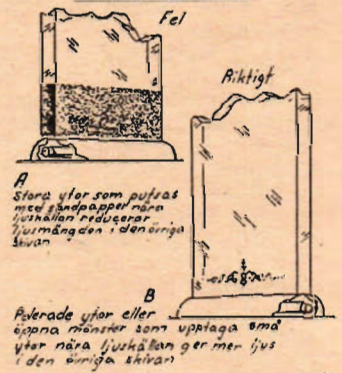 Fel
Riktigt
A
Stora ytor som putsas
med sandpapper nära
ljuskällan reducerar
ljusmängden i den övriga
skivan
B
Polerade ytor eller
öppna mönster som upptaga små
ytor nära ljuskällan ger mer ljus
i den övriga skivan